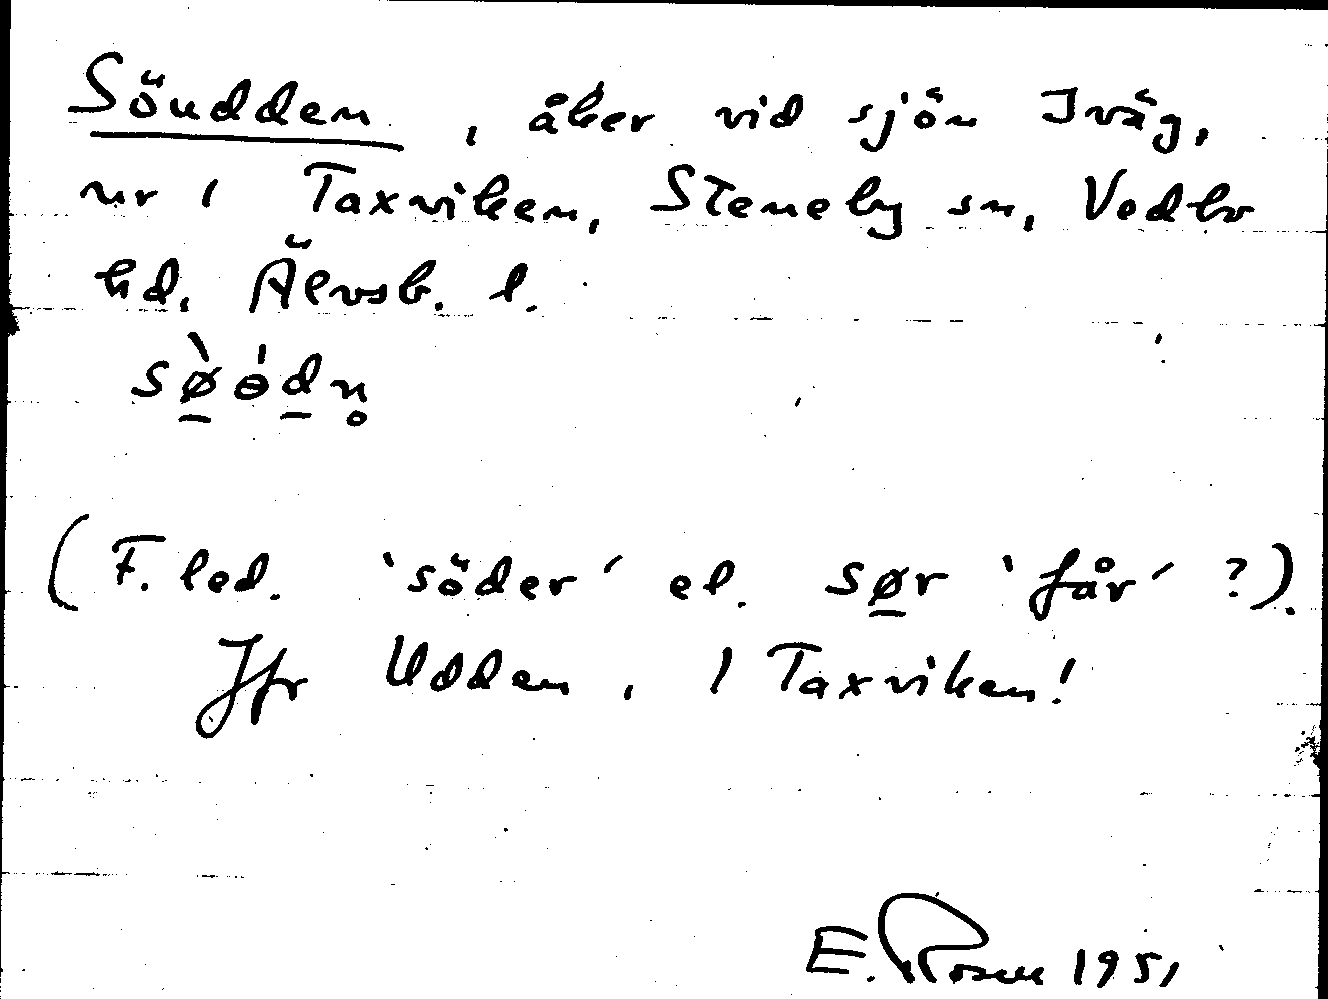 Söudden, åker vid sjön Iväg,
nr 1 Taxviken, Steneby sn, Vedbo
hd. Älvsb. l.
sø̱̀ɵ́ḏn̥
(F. led. 'söder' el. sø̱r 'får' ?).
Jfr Udden, 1 Taxviken!
E. Rosen 1951